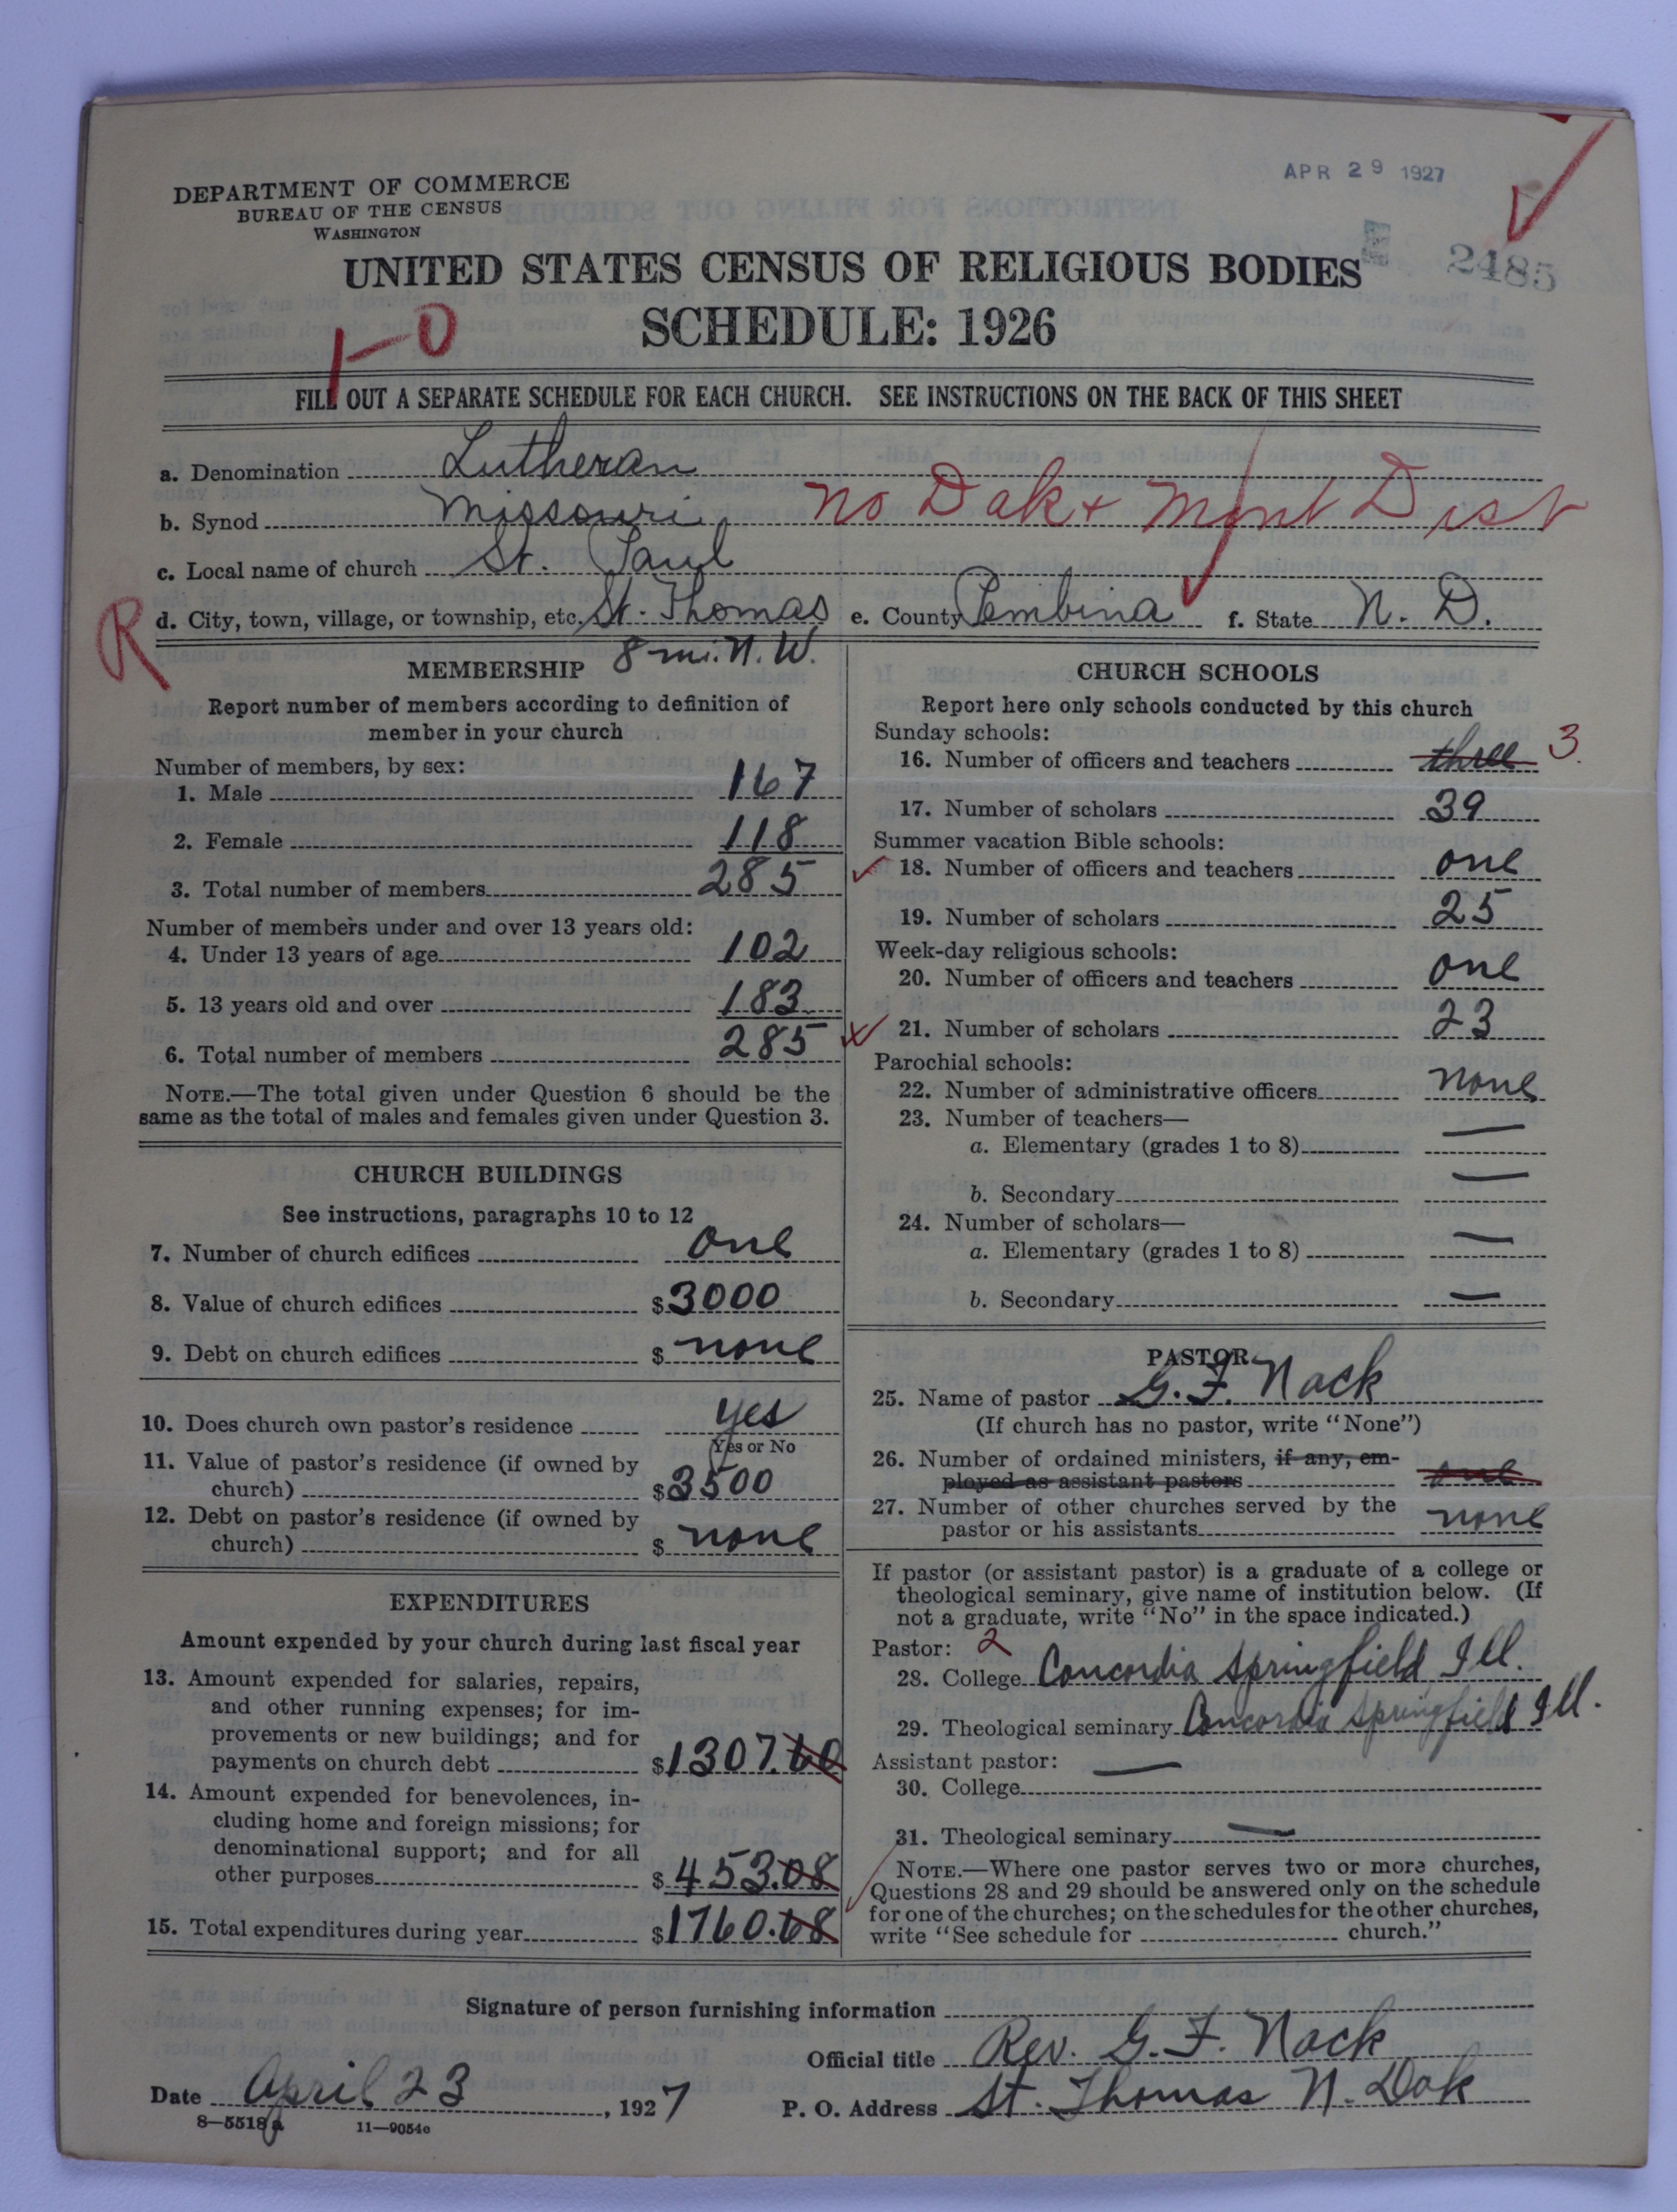 APR 29 1927
DEPARTMENT OF COMMERCE
BUREAU OF THE CENSUS
WASHINGTON
2485
UNITED STATES CENSUS OF RELIGIOUS BODIES
SCHEDULE: 1926
1-0
FILL OUT A SEPARATE SCHEDULE FOR EACH CHURCH. SEE INSTRUCTIONS ON THE BACK OF THIS SHEET
a. Denomination Lutheran
b. Synod Missouri No Dak + Mont Dist
c. Local name of church St. Paul
R
d. City, town, village, or township, etc. St. Thomas e. County Pembina f. State N. D.
8 mi. N. W.
MEMBERSHIP
Report number of members according to definition of
member in your church
Number of members, by sex:
1. Male 167
2. Female 118
3. Total number of members 285
Number of members under and over 13 years old:
4. Under 13 years of age 102
5. 13 years old and over 183
6. Total number of members 285
NOTE.—The total given under Question 6 should be the
same as the total of males and females given under Question 3.
CHURCH BUILDINGS
See instructions, paragraphs 10 to 12
7. Number of church edifices one
8. Value of church edifices $3000
9. Debt on church edifices $ none
10. Does church own pastor's residence yes
Yes or No
11. Value of pastor's residence (if owned by
church) $3500
12. Debt on pastor's residence (if owned by
church) $ none
EXPENDITURES
Amount expended by your church during last fiscal year
13. Amount expended for salaries, repairs,
and other running expenses; for im-
provements or new buildings; and for
payments on church debt $1307.60
14. Amount expended for benevolences, in-
cluding home and foreign missions; for
denominational support; and for all
other purposes $453.08
15. Total expenditures during year $1760.68
CHURCH SCHOOLS
Report here only schools conducted by this church
Sunday schools:
16. Number of officers and teachers three 3
17. Number of scholars 39
Summer vacation Bible schools:
18. Number of officers and teachers one
19. Number of scholars 25
Week-day religious schools:
20. Number of officers and teachers one
21. Number of scholars 23
Parochial schools:
22. Number of administrative officers none
23. Number of teachers—
a. Elementary (grades 1 to 8) —
b. Secondary —
24. Number of scholars—
a. Elementary (grades 1 to 8) —
b. Secondary —
PASTOR
25. Name of pastor G. F. Nack
(If church has no pastor, write "None")
26. Number of ordained ministers, if any, em-
ployed as assistant pastors one
27. Number of other churches served by the
pastor or his assistants none
If pastor (or assistant pastor) is a graduate of a college or
theological seminary, give name of institution below. (If
not a graduate, write "No" in the space indicated.)
Pastor: 2
28. College Concordia Springfield Ill.
29. Theological seminary Concordia Springfield Ill.
Assistant pastor:
30. College —
31. Theological seminary —
NOTE.—Where one pastor serves two or more churches,
Questions 28 and 29 should be answered only on the schedule
for one of the churches; on the schedules for the other churches,
write "See schedule for church."
Signature of person furnishing information
Official title Rev. G. F. Nack
Date April 23, 1927 P. O. Address St. Thomas N. Dak
8—5518a 11—9054c